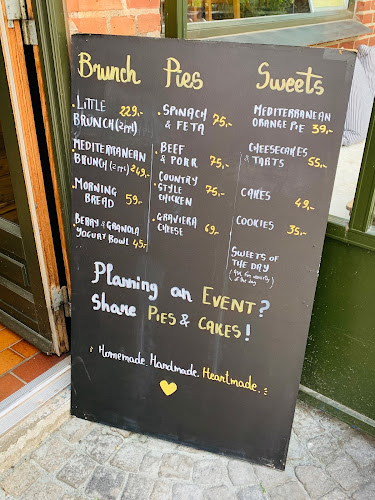 Brunch
. Little 229.-
Brunch (2 prs)
Mediterranean
Brunch (2 prs) 249.-
. Morning
Bread 59.-
. Berry & Granola
Yogurt Bowl 45.-
Pies
. Spinach
& Feta 75,-
. Beef
& Pork 75,-
Country
Style
Chicken 75,-
. Graviera
Cheese 69,-
Sweets
Mediterranean
Orange Pie 39,-
Cheesecakes
& Tarts 55,-
Cakes 49,-
Cookies 35,-
Sweets of
the Day
of the day
Planning an Event?
Share Pies & Cakes!
Homemade. Handmade. Heartmade.